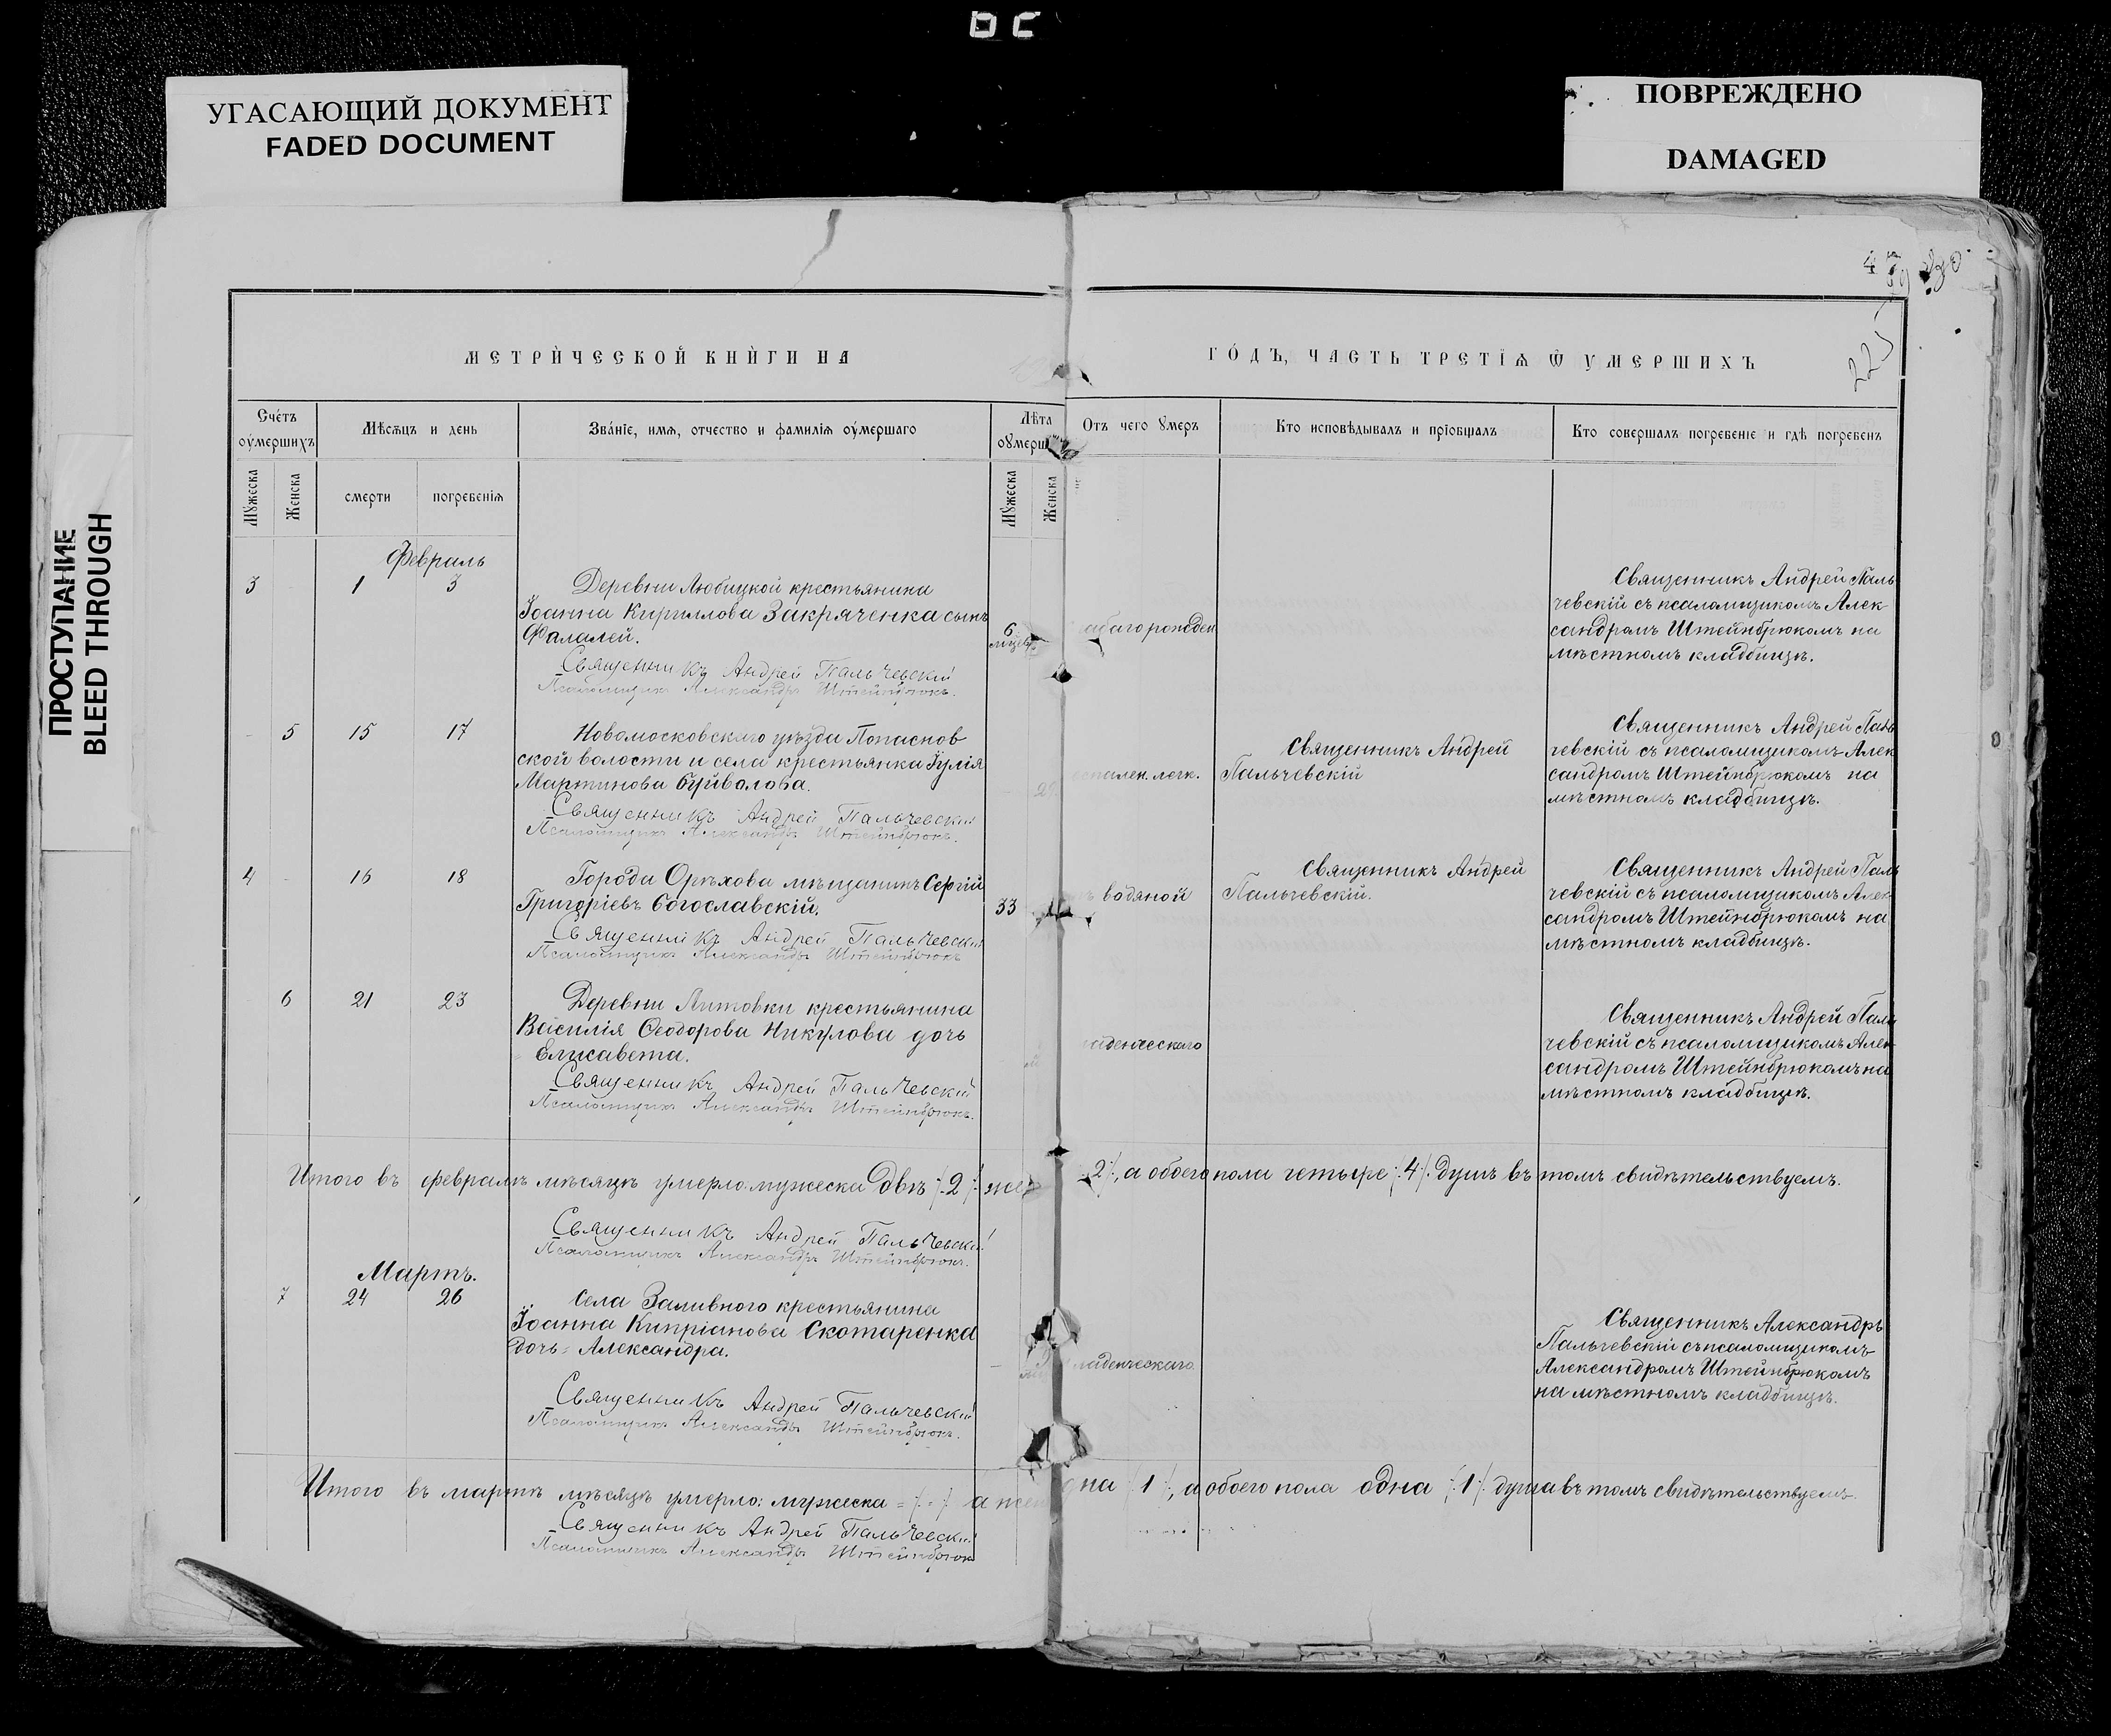 УГАСАЮЩИЙ ДОКУМЕНТ
FADED DOCUMENT
ПОВРЕЖДЕНО
DAMAGED
ПРОСТУПАНИЕ
BLEED THROUGH
МЕТРИ́ЧЕСКОЙ КНИ́ГИ НА
ГО́ДЪ, ЧАСТЬ ТРЕТЇѦ Ѿ УМЕРШИХЪ
225
Счетъ оумершихъ
Мѣсѧцъ и день
Зва́нїе, имѧ, отчество и фамилїѧ оумершаго
Лѣта оумерш
Отъ чего умеръ
Кто исповѣдывалъ и прїобщалъ
Кто совершалъ погребенїе и гдѣ погребенъ
Мужеска
Женска
смерти
погребенїѧ
Мужеска
Женска
Февраль
3 - 1 3
Деревни Любицкой крестьянина
Іоанна Кириллова Закряченка сынъ
Фалалей.
6
Священникъ Андрей Пальчевскій
Псаломщикъ Александръ Штейнбрюкъ.
Священникъ Андрей Паль
чевскій съ псаломщикомъ Алек
сандромъ Штейнбрюкомъ на
мѣстномъ кладбищѣ.
- 5 15 17
Новомосковскаго уѣзда Попаснов
ской волости и села крестьянка Іулія
Мартинова Буйволова.
Священникъ Андрей Пальчевскій
Псаломщикъ Александръ Штейнбрюкъ.
спален. легк.
Священникъ Андрей
Пальчевскій
Священникъ Андрей Паль
чевскій съ псаломщикомъ Алек
сандромъ Штейнбрюкомъ на
мѣстномъ кладбищѣ.
4 - 16 18
Города Орѣхова мѣщанинъ Сергій
Григоріевъ Богославскій.
33
Священникъ Андрей Пальчевскій
Псаломщикъ Александръ Штейнбрюкъ
водяной
Священникъ Андрей
Пальчевскій.
Священникъ Андрей Паль
чевскій съ псаломщикомъ Алек-
сандромъ Штейнбрюкомъ на
мѣстномъ кладбищѣ.
6 21 23
Деревни Литовки крестьянина
Василія Ѳеодорова Никулова дочь
Елисавета.
Священникъ Андрей Пальчевскій
Псаломщикъ Александръ Штейнбрюкъ.
аденческаго
Священникъ Андрей Паль
чевскій съ псаломщикомъ Алек-
сандромъ Штейнбрюкомъ на
мѣстномъ кладбищѣ.
Итого въ февралѣ мѣсяцѣ умерло: мужеска двѣ /:2:/ жен 2:/, а обоего пола четыре /:4:/ душъ въ томъ свидѣтельствуемъ.
Священникъ Андрей Пальчевскій
Псаломщикъ Александръ Штейнбрюкъ.
Мартъ.
7 24 26
Села Заливного крестьянина
Іоанна Кипріанова Скотаренка
дочь Александра.
Священникъ Андрей Пальчевскій
Псаломщикъ Александръ Штейнбрюкъ.
ладенческаго
Священникъ Александръ
Пальчевскій съ псаломщикомъ
Александромъ Штейнбрюкомъ
на мѣстномъ кладбищѣ.
Итого въ мартѣ мѣсяцѣ умерло: мужеска - /:-:/ а жен дна /:1:/, а обоего пола одна /:1:/ душа въ томъ свидѣтельствуемъ.
Священникъ Андрей Пальчевскій
Псаломщикъ Александръ Штейнбрюкъ